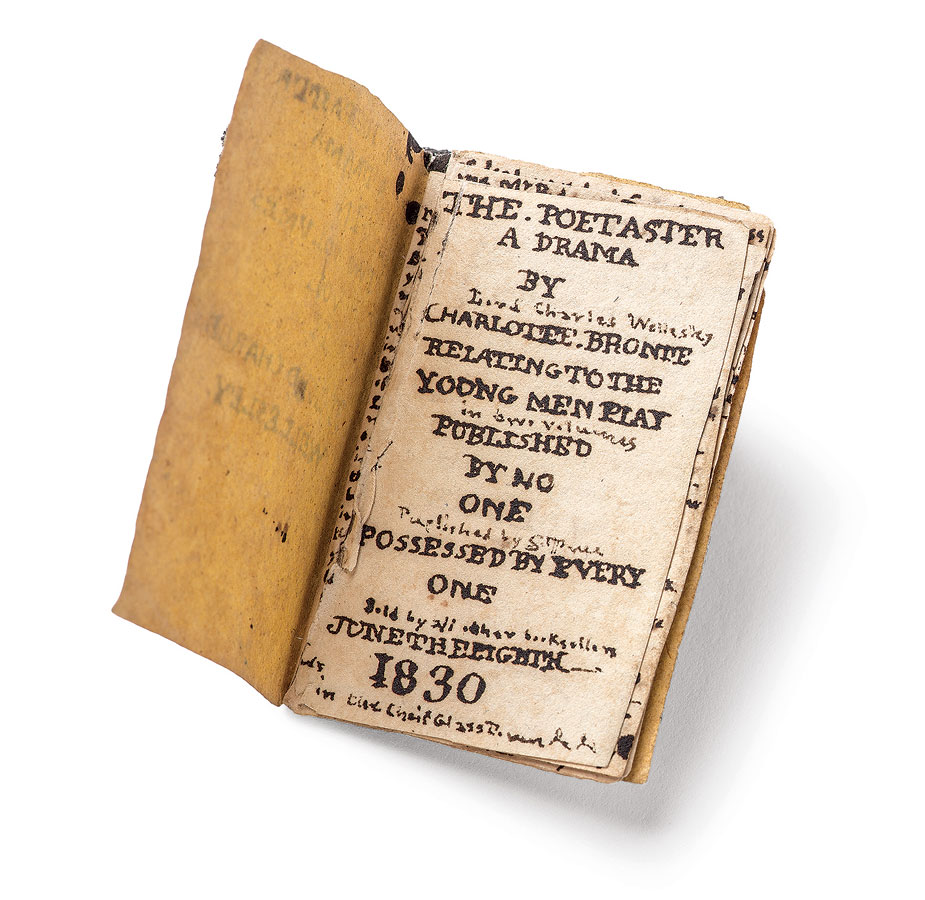 THE.POETASTER
A DRAMA
BY
Lord Charles Wellesley
CHARLOTTE.BRONTE
RELATING TO THE
YOUNG MEN PLAY
in two volumes
PUBLISHED
BY NO
ONE
Published by
POSSESSED BY EVERY
ONE
Sold by all other booksellers
JUNE THE EIGHTH
1830
in the Cheif Glass Town &c &c